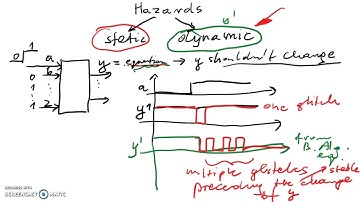 Hazards
static dynamic y'
0 1 a y = equation → y shouldn't change
0 b
1
1
1 z
a
y 1 one glitch
y' from B. Alg. eq.
multiple glitches → stable
preceding the change
of y
RECORDED WITH
SCREENCAST MATIC